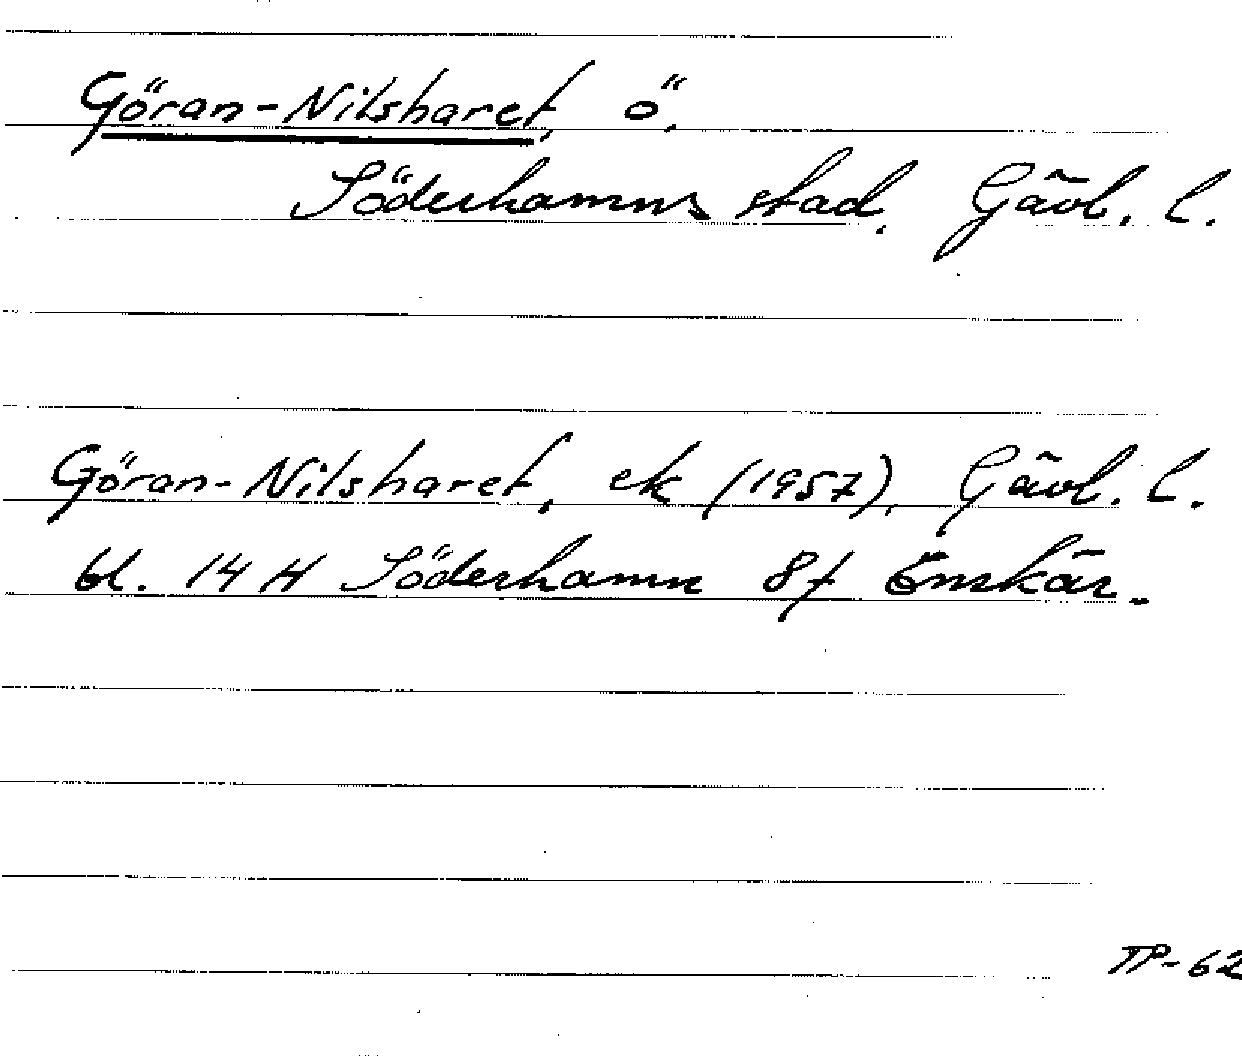 Göran-Nilsharet, ö.
Söderhamns stad, Gävl. l.
Göran-Nilsharet, ek (1957), Gävl. l.
bl. 14 H Söderhamn 8f Enskär.
TP-62